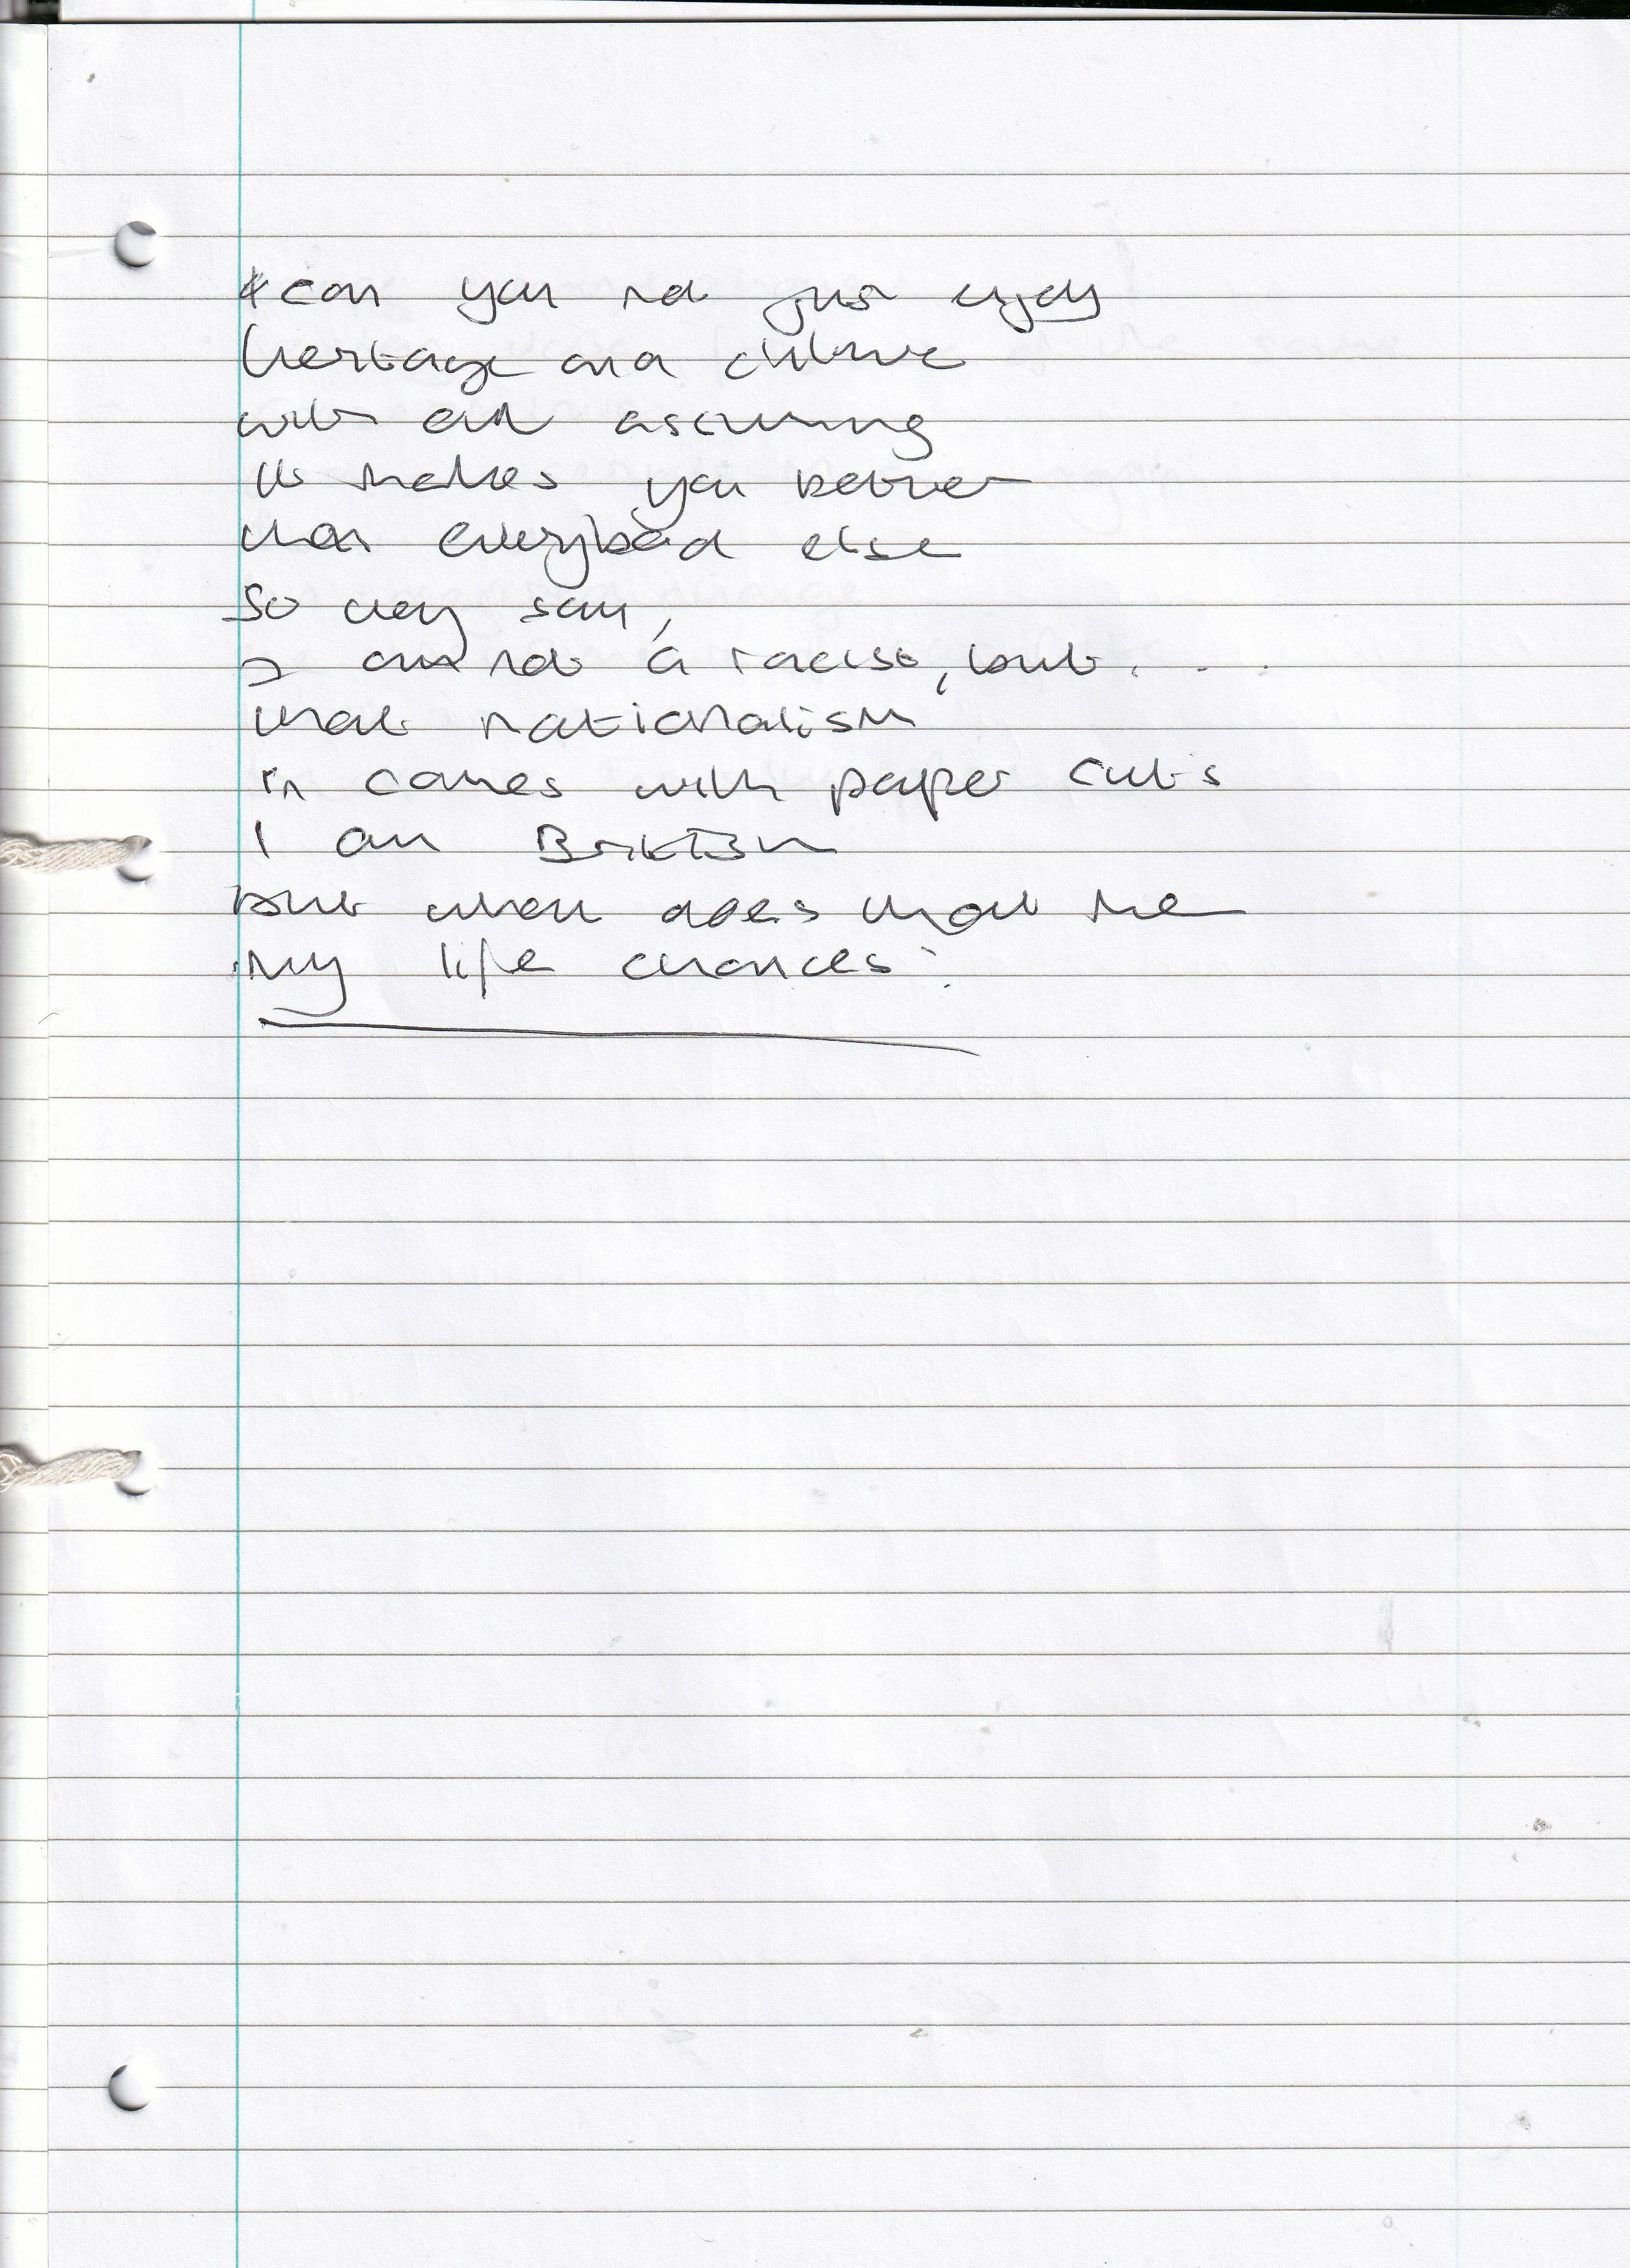 can you not just enjoy
heritage and culture
with out assuming
it makes you better
than everybod else
so they say,
I am not a racist, but . . .
that nationalism
in comes with paper cuts
I am British
but when does that me
my life chances